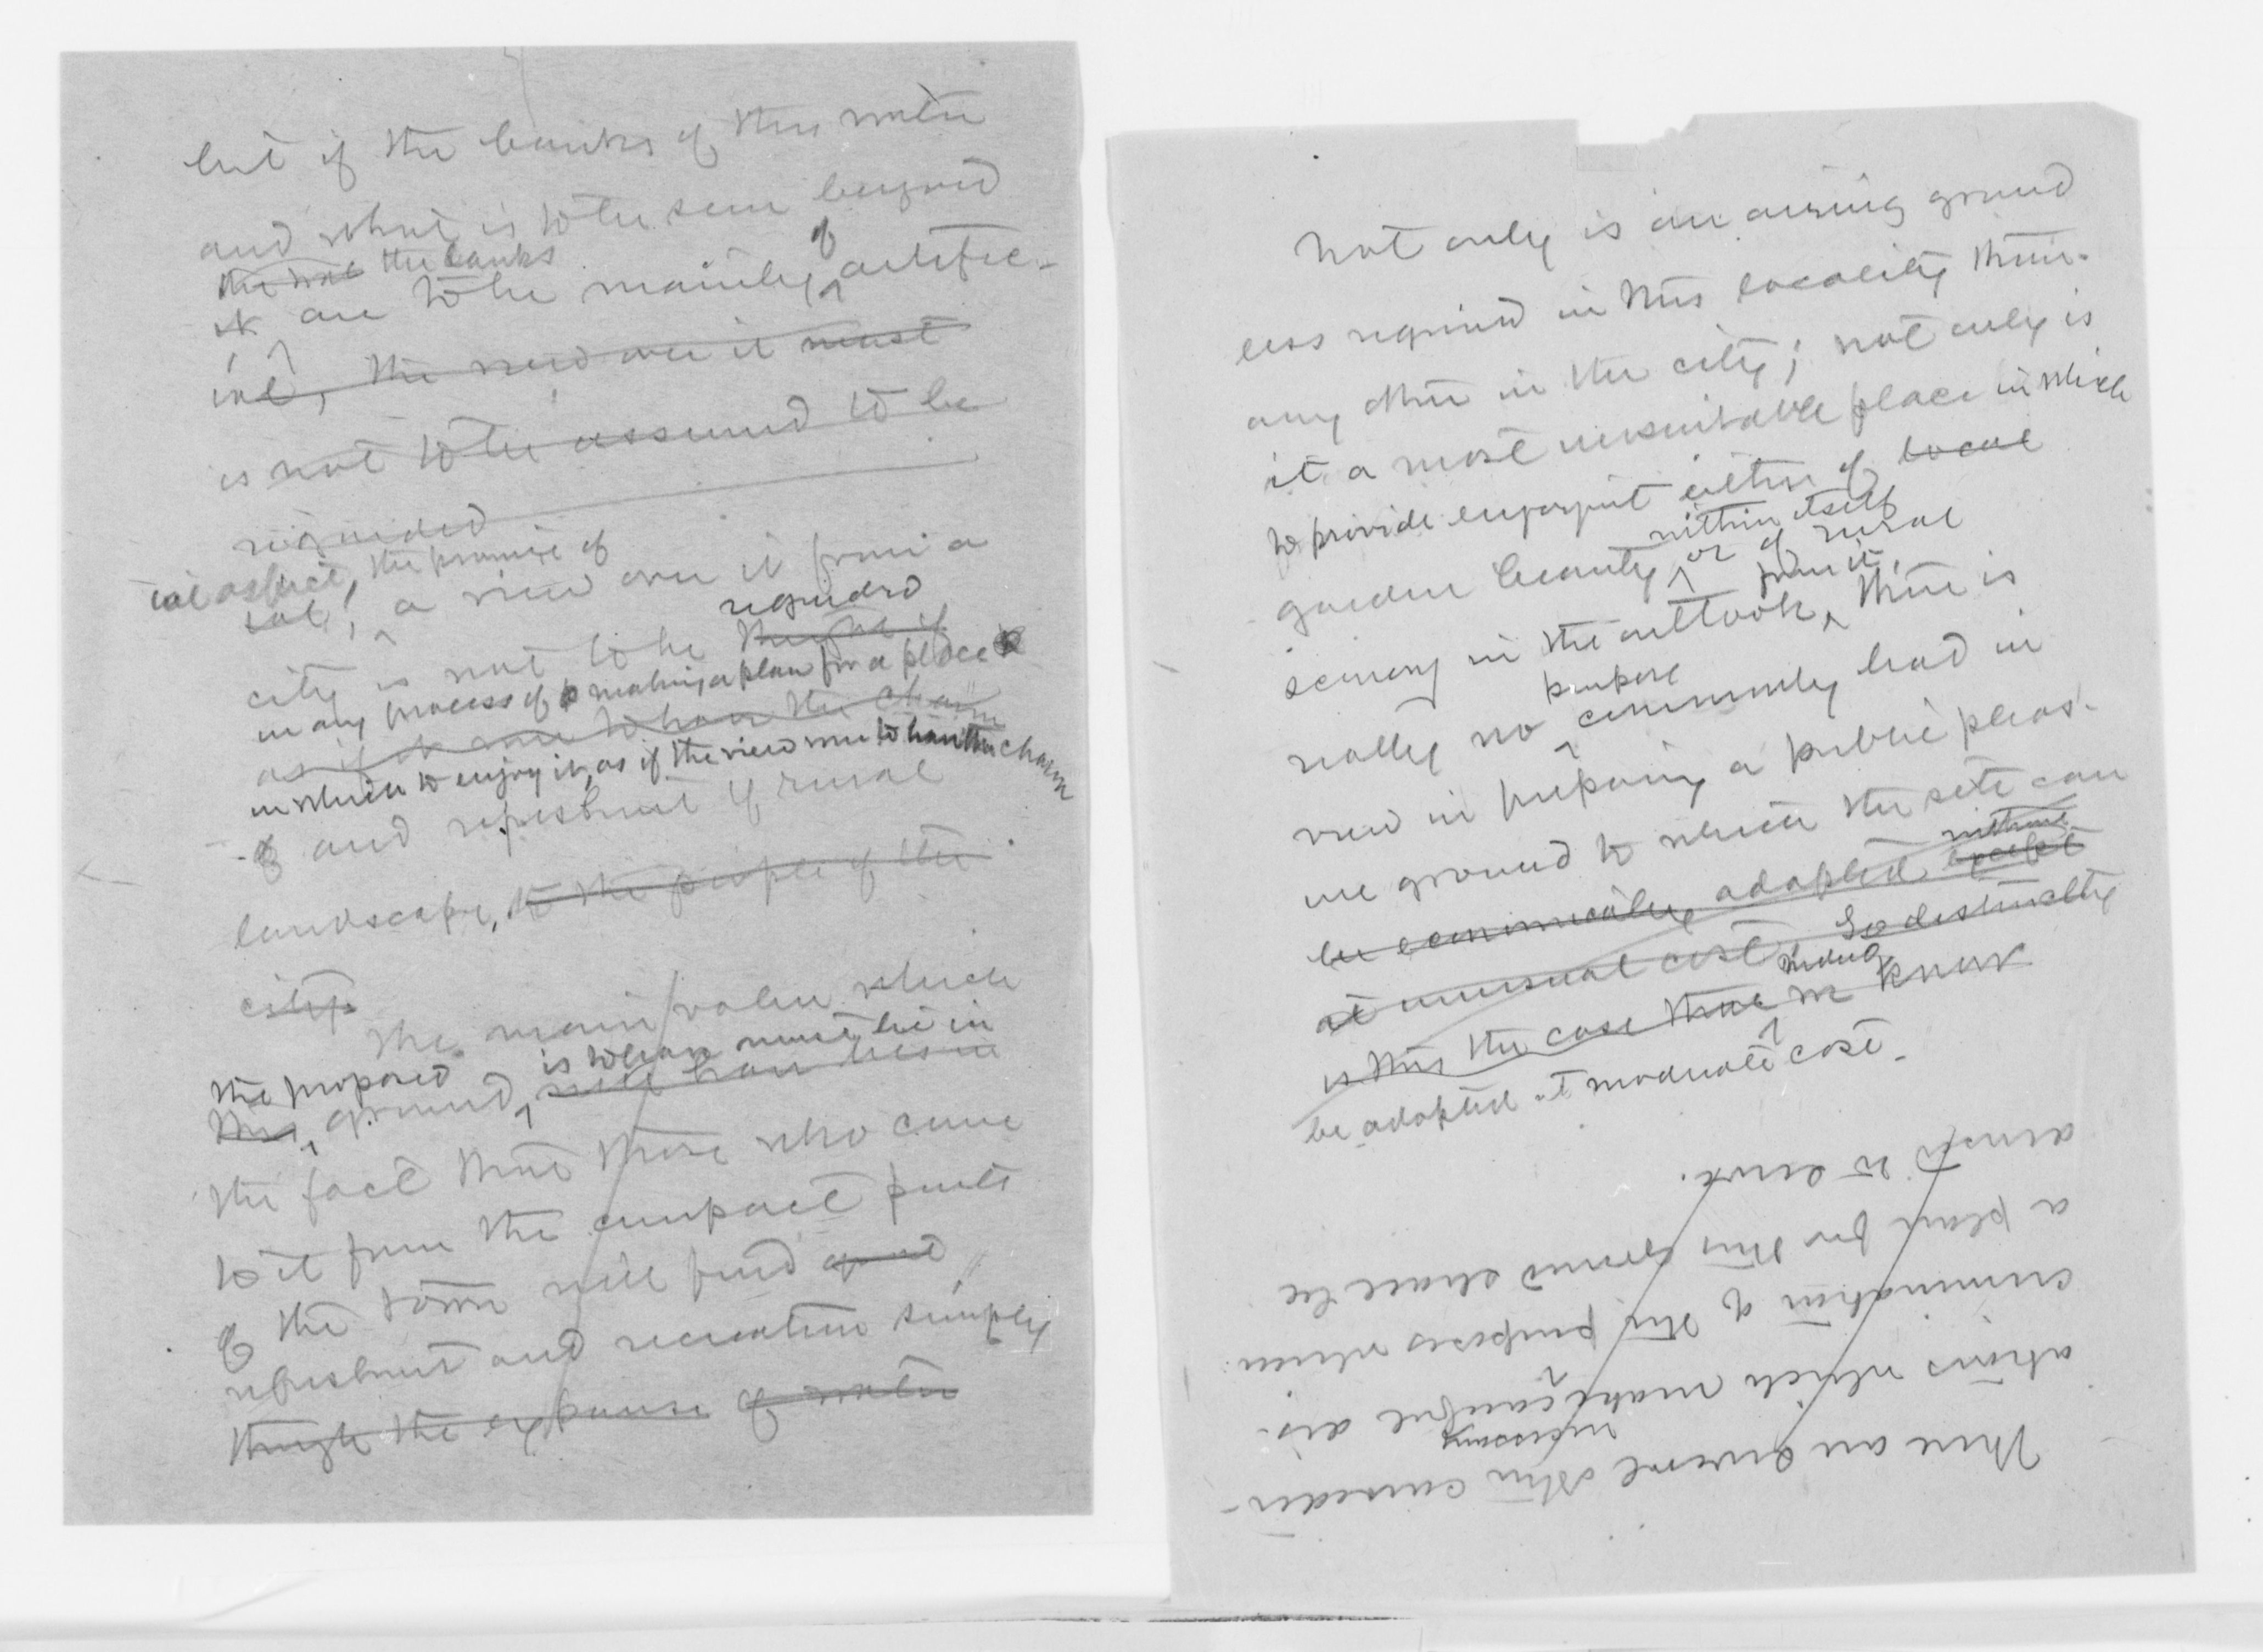 but if the banks of this water
and what is to be seen beyond
the wat the banks
it are to be mainly of artific-
ial, the view over it must
is not to be assumed to be
regarded
ial aspect, the promise of
ial, a view over it from a
city is not to be thought of regarded
in any process of making a plan for a place
as if it were to have the charm
in which to enjoy it, as if the view were to have the charm
of and refreshment of rural
landscape, to the people of the
city.
The main value which
the proposed is to have must be in
this ground, will have lies in
the fact that those who come
to it from the compact parts
of the town will find good
refreshment and recreation simply
through the expanse of water
Not only is an airing ground
less required in this locality than
any other in the city; not only is
it a most unsuitable place in which
to provide enjoyment either of local
garden beauty within itself or of rural
scenery in the outlook from it, there is
really no purpose commonly had in
view in preparing a public pleas-
ure ground to which the site can
be economically adapted except without
at unusual cost. So distinctly
is this the case that we know
be adapted at moderate cost.
There are several other consider-
ations which make necessary careful dis-
crimination of the purposes which
a plan for this ground shall be
aimed to serve.